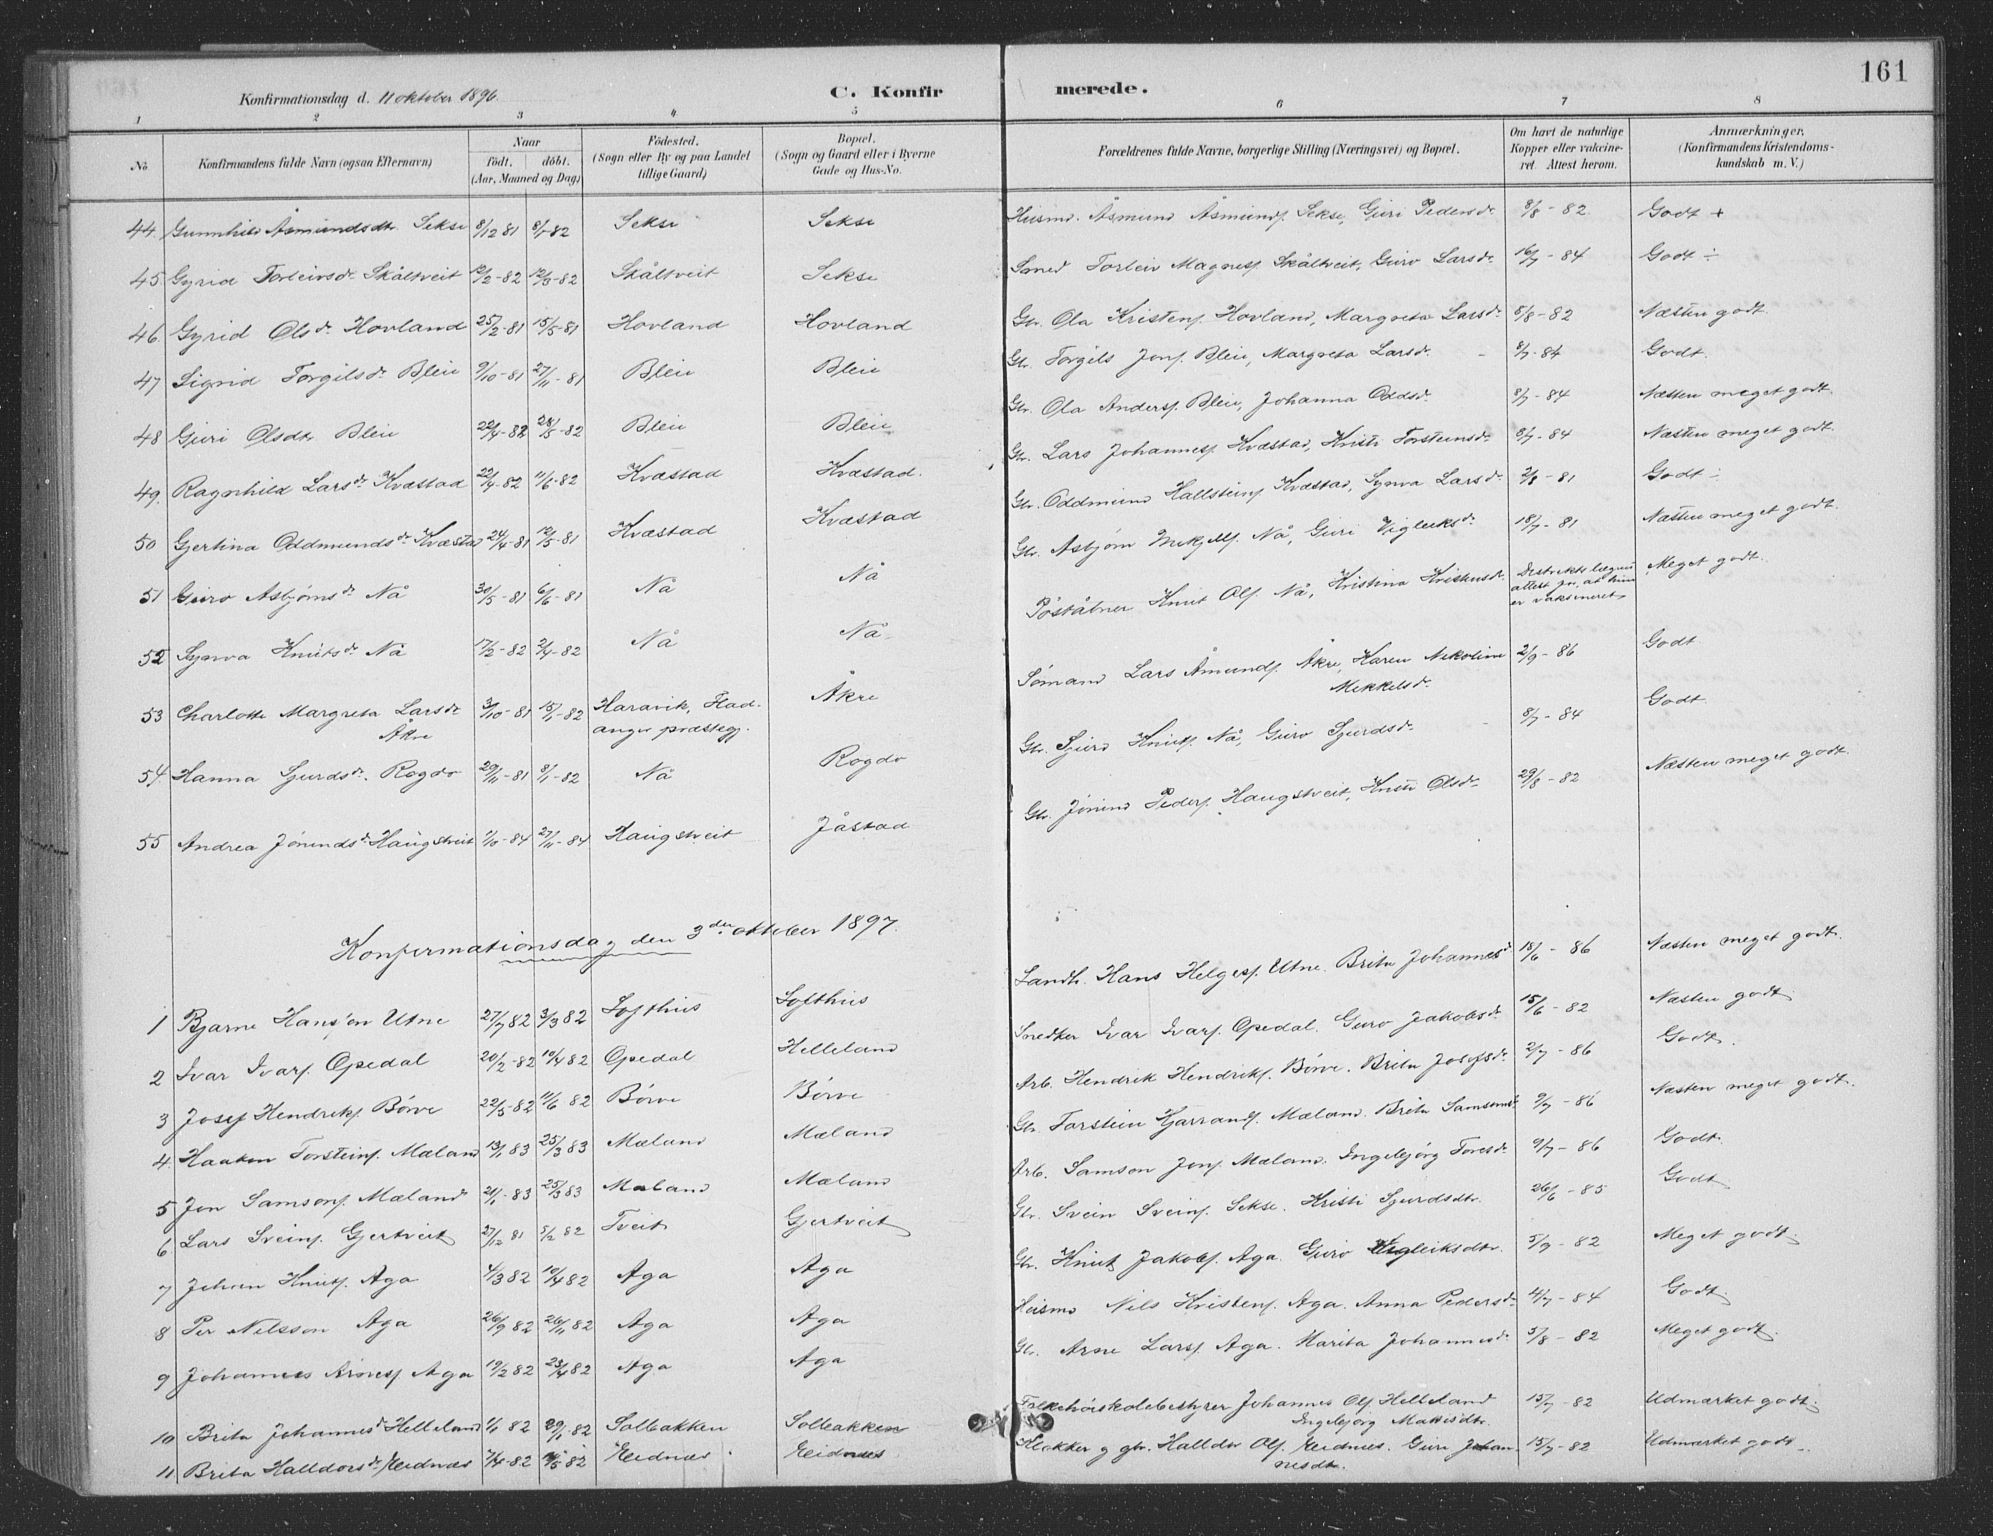 161
Konfirmationsdag d. 11 oktober 1896.
C. Konfirmerede.
1 2 3 4 5 6 7 8
No
Konfirmandens fulde Navn (ogsaa Efternavn)
Naar
födt. döbt.
(Aar, Maaned og Dag)
Födested.
(Sogn eller By og paa Landet
tillige Gaard)
Bopæl.
(Sogn og Gaard eller i Byerne
Gade og Hus-No.
Forældrenes fulde Navne, borgerlige Stilling (Næringsvei) og Bopæl.
Om havt de naturlige
Kopper eller vakcine-
ret. Attest herom.
Anmærkninger.
(Konfirmandens Kristendoms-
kundskab m. V.)
44. Gunnhild Åsmundsdtr Sekse 8/12 81 8/1-82 Sekse Sekse Husmd. Åsmund Åsmundss. Sekse, Guri Pedersdr. 8/8-82 Godt +
45. Gyrid Torleivsdr. Skåltveit 12/2-82 12/3-82 Skåltveit Sekse Smed Torleiv Magness. Skåltveit, Guro Larsdr. 16/7-84 Godt ÷
46. Gyrid Olsdr. Hovland 25/2-81 15/5-81 Hovland Hovland Gbr. Ola Kristens. Hovland, Margreta Larsdr. 8/8-82 Næsten godt.
47 Sigrid Torgilsdr. Bleie 9/10-81 27/11-81 Bleie Bleie Gbr. Torgils Jons. Bleie, Margreta Larsdr. 8/7-84 Godt.
48 Guri Olsdtr Bleie 22/4-82 28/5-82 Bleie Bleie Gbr. Ola Anders. Bleie, Johanna Oddsdr. 8/7-84 Næsten meget godt.
49. Ragnhild Larsdr. Kvæstad 22/4-82 11/6-82 Kvæstad Kvæstad. Gbr. Lars Johanness. Kvæstad, Kristi Torsteinsdr. 8/7-84 Næsten meget godt.
50 Gjertina Oddmundsdr. Kvæstad 24/4-81 12/5-81 Kvæstad Kvæstad Gbr. Oddmund Hallsteins. Kvæstad, Synva Larsdr. 2/8-81 Godt ÷
51 Guro Asbjørnsdr. Nå 30/5-81 6/6-81 Nå Nå Gbr. Asbjørn Mikjells. Nå, Guri Vigleiksdr. 18/7-81 Næsten meget godt.
52 Synva Knutsdr. Nå 17/2-82 2/4-82 Nå Nå. Poståbner Knut Ols. Nå, Kristina Kristensdr. Distriktslægens
attest for, at hun
er vaksineret Meget godt.
53 Charlotte Margreta Larsdr.
Åkre 3/10-81 15/1-82 Haravik, Flad-
anger præstegj. Åkre Sømand Lars Åmunds. Åkre, Karen Nikoline
Mikkelsdr. 2/9-86 Godt
54. Hanna Sjurdsdr. Rogdo 29/11-81 8/1-82 Nå Rogdo Gbr. Sjurd Knuts. Nå, Guro Sjurdsdr. 8/7-84 Godt
55 Andrea Jørundsdr. Haugstveit 1/10-84 27/11-84 Haugstveit Jåstad Gbr. Jørund Peders. Haugstveit, Kristi Olsdr. 29/8-82 Næsten meget godt.
Konfirmationsdag den 3die oktober 1897.
1 Bjarne Hans'on Utne 27/7 82 3/3 82 Lofthus Lofthus Landh. Hans Helges. Utne. Brita Johannesd. 18/6-86 Næsten meget godt.
2 Ivar Ivars. Opedal 20/2-82 10/4 82 Opedal Helleland Snedker Ivar Ivars. Opedal. Guro Jakobsdr. 15/6-82 Næsten godt.
3 Josef Hendriks. Børve 22/5-82 11/6 82 Børve Børve Arb. Hendrik Hendriks. Børve. Brita Josefsdr. 2/7-86 Godt.
4. Haakon Torsteins. Mæland 13/1 83 25/3 83 Mæland Mæland Gbr. Torstein Gjarrands. Mæland. Brita Samsonsdr. 9/7-86 Næsten meget godt.
5 Jon Samsons. Mæland 21/1-83 25/3 83 Mæland Mæland Arb. Samson Jons. Mæland. Ingebjørg Toresdr. 9/7-86 Godt.
6 Lars Sveins. Gjertveit 27/12 81 5/2 82 Tveit Gjertveit Gbr. Svein Sveins. Sekse. Kristi Sjurdsdtr. 26/6-85 Godt
7 Johan Knuts. Aga 4/3 82 10/4 82 Aga Aga Gbr. Knut Jakobs. Aga. Guro Vigleiksdtr. 5/9-82 Meget godt.
8 Per Nilsson Aga 26/9 82 26/11 82 Aga Aga Husmd Nils Kristens. Aga. Anna Pedersdr. 4/7-84 Godt.
9 Johannes Arnes. Aga 19/2 82 23/4 82 Aga Aga Gbr. Arne Lars. Aga. Marita Johannesdr. 5/8-82 Meget godt.
10 Brita Johannesd. Helleland 1/1 82 29/1 82 Solbakken Solbakken Folkehøiskolebestyrer Johannes Ols. Helleland
Ingebjørg Mattisdtr. 15/7-82 Udmærket godt.
11 Brita Halldorsdr. Eidnæs 7/4-82 82 Eidnæs Eidnæs Klokker g gbr. Halldor Ols. Eidnæs. Guri Johan-
nesdtr. 15/7-82 Udmærket godt.